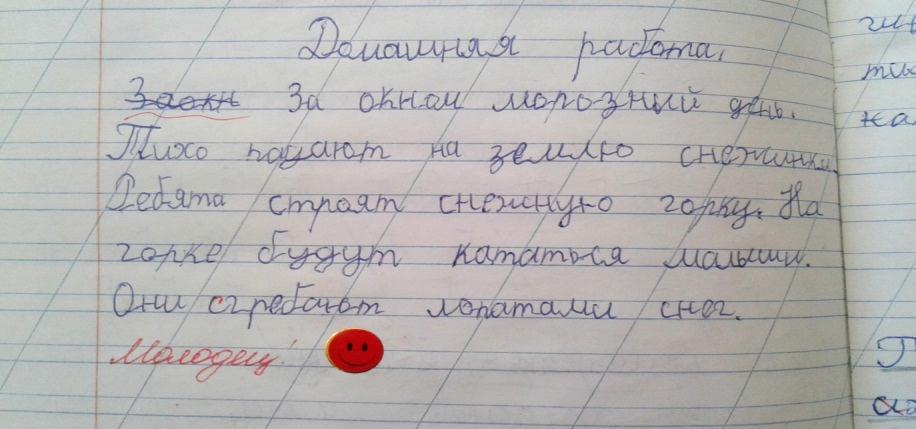 Домашняя работа.
Заокн За окном морозный день.
Тихо падают на землю снежинки.
Ребята строят снежную горку. На
горке будут кататься малыши.
Они сгребают лопатами снег.
Молодец!